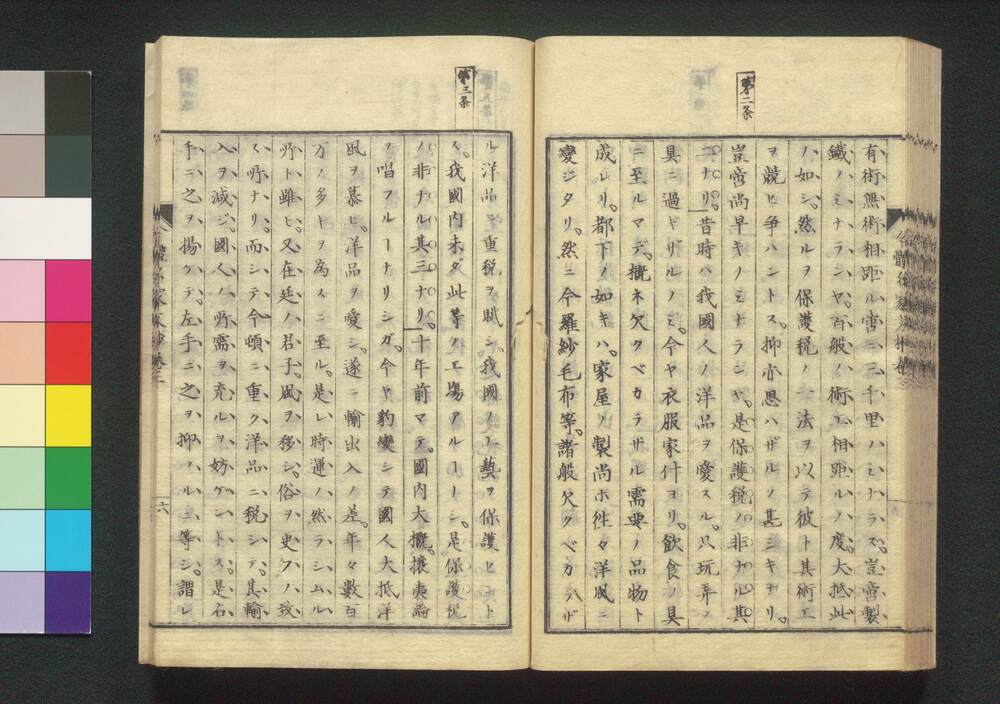 第二条
有術無術相距ル啻ニ三千里ノミナラズ。豈啻製
鐵ノミナランヤ。百般ノ術工相距ルノ度。大抵此
ノ如シ。然ルヲ保護税ノ一法ヲ以テ彼ト其術工
ヲ競ヒ争ハントス。抑亦思ハザルノ甚シキナリ。
豈啻尚早キノミナランヤ。是保護税ノ非ナル其
二ナリ。昔時ハ我國人ノ洋品ヲ愛スル。只玩弄ノ
具ニ過ギザルノミ。今ヤ衣服家什ヨリ。飲食ノ具
ニ至ルマデ。概ネ欠クベカラザル需要ノ品物ト
成レリ。都下ノ如キハ。家屋ノ製尚ホ往々洋風ニ
變ジタリ。然ニ今羅紗毛布等。諸般欠クベカラザ
第三条
ル洋品ニ重税ヲ賦シ。我國ノ工藝ヲ保護セント
ス。我國内未ダ此等ノ工場アルヿナシ。是保護税
ノ非ナル其三ナリ。十年前マデ。國内大概攘夷論
ヲ唱フルヿナリシガ。今ヤ豹變シテ國人大抵洋
風ヲ慕ヒ。洋品ヲ愛シ。遂ニ輸出入ノ差。年々數百
万ノ多キヲ為スニ至ル。是レ時運ノ然ラシムル
所ト雖ヒ。又在廷ノ君子。風ヲ移シ。俗ヲ史フノ致
ス所ナリ。而シテ今頓ニ重ク洋品ニ税シテ。其輸
入ヲ減ジ。國人ノ所需ヲ充ルヲ妨ゲントス。是右
手ニ之ヲ揚ゲテ。左手ニ之ヲ抑ハルニ等シ。謂レ
六